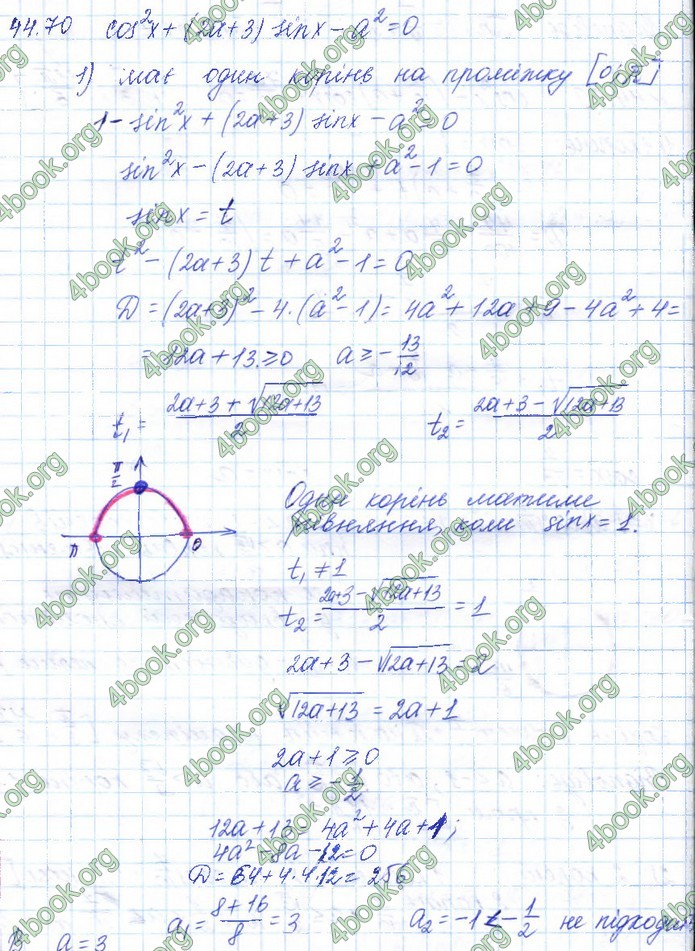 44.70 cos²x + (2a+3) sinx - a² = 0
1) має один корінь на проміжку [0;π]
1 - sin²x + (2a+3) sinx - a² = 0
sin²x - (2a+3) sinx + a² - 1 = 0
sinx = t
t² - (2a+3) t + a² - 1 = 0
D = (2a+3)² - 4·(a²-1) = 4a² + 12a + 9 - 4a² + 4 =
= 12a + 13 ≥ 0 a ≥ -13/12
t₁ = (2a+3+√(12a+13))/2 t₂ = (2a+3-√(12a+13))/2
π/2
π 0
Один корінь матиме
рівняння, коли sinx = 1.
t₁ ≠ 1
t₂ = (2a+3-√(12a+13))/2 = 1
2a+3-√(12a+13) = 2
√(12a+13) = 2a+1
2a+1 ≥ 0
a ≥ -1/2
12a+13 = 4a²+4a+1;
4a²-8a-12=0
D = 64+4·4·12 = 256
a₁ = (8+16)/8 = 3 a₂ = -1 < -1/2 не підходить
a = 3
4book.org